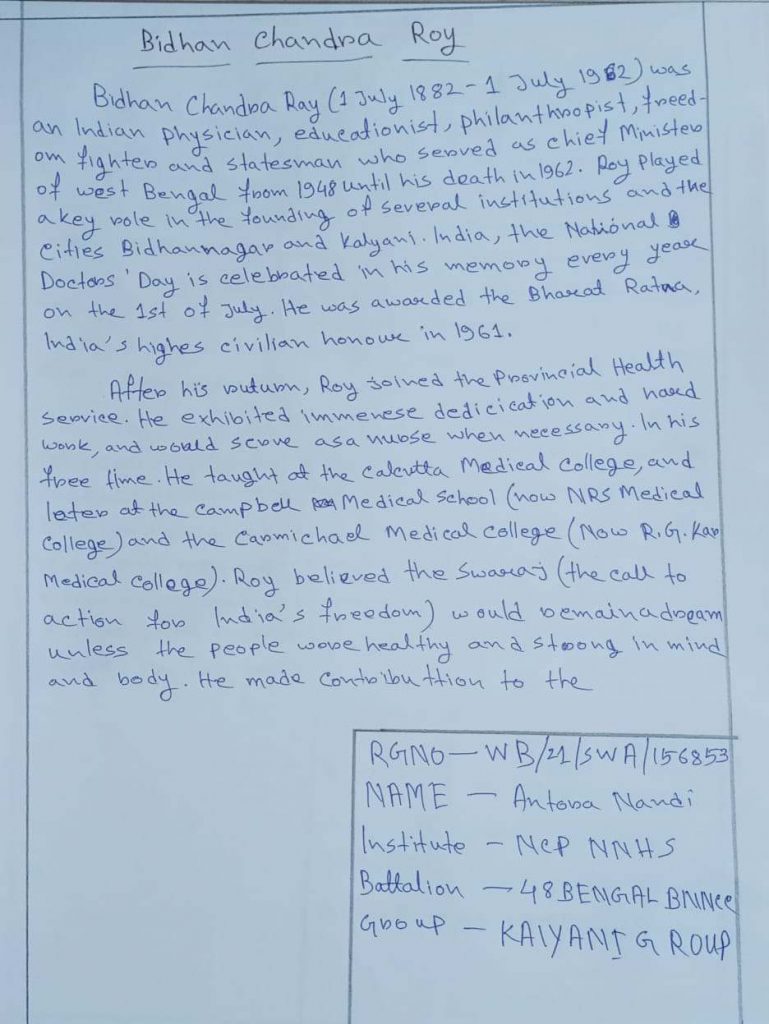 Bidhan Chandra Roy
Bidhan Chandra Ray (1 July 1882 - 1 July 1962) was
an Indian physician, educationist, philanthropist, freed-
om fighter and statesman who served as chief Minister
of west Bengal from 1948 until his death in 1962. Roy played
a key role in the founding of several institutions and the
cities Bidhannagar and Kalyani. India, the National
Doctors' Day is celebrated in his memory every year
on the 1st of July. He was awarded the Bharat Ratna,
India's highes civilian honour in 1961.
After his ruturn, Roy joined the Provincial Health
service. He exhibited immenese dedicication and hard
work, and would serve as a nurse when necessary. In his
free time. He taught at the Calcutta Medical College, and
later at the Campbell Medical School (now NRS Medical
College) and the Carmichael Medical College (Now R.G. Kar
Medical College). Roy believed the Swaraj (the call to
action for India's freedom) would remain a dream
unless the people were healthy and strong in mind
and body. He made Contributtion to the
RGNO - WB/21/SWA/156853
NAME - Antora Nandi
Institute - NCP NNHS
Battalion - 48 BENGAL BNNCC
Group - KALYANI GROUP